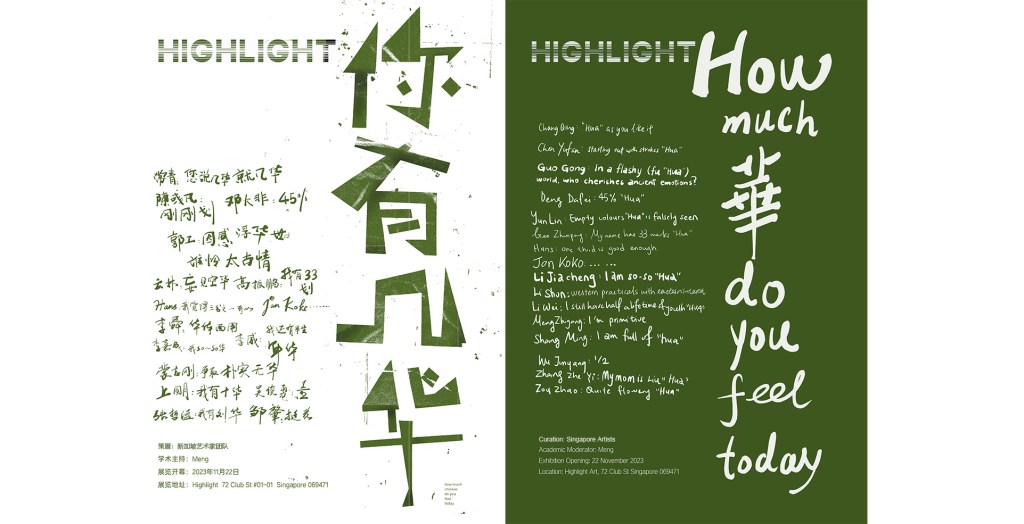 HIGHLIGHT
你有几华
常青：您说几华就几华
陈彧凡：
刚刚划
邓大非：45%
郭工：因感浮华世
谁怜太古情
云林：妄见空华
高振鹏：我有33
划
Hans：
Jon Koko ......
李舜：华体西用
李嘉成：我so-so华
李威：我还有半生
年华
蒙志刚：朴实无华
上明：我有十华
吴俊勇：壹
张哲溢：我有刘华
邹肇：挺花
策展：新加坡艺术家团队
学术主持：Meng
展览开幕：2023年11月22日
展览地址：Highlight 72 Club St #01-01 Singapore 069471
how much
chinese
do you
feel
today
HIGHLIGHT
How
much
華
do
you
feel
today
Chang Qing: "Hua" as you like it
Chen Yufan: starting out with strokes "Hua"
Guo Gong: In a flashy (fu "Hua")
world, who cherishes ancient emotions?
Deng Dafei: 45% "Hua"
Yun Lin: Empty colours "Hua" is falsely seen
Gao Zhenpeng: My name has 33 marks "Hua"
Hans: one third is good enough
Jon Koko ......
Li Jiacheng: I am so-so "Hua"
Li Shun: western practicals with eastern
Li Wei: I still have half a lifetime of youth "Hua"
Meng Zhigang: I'm primitive
Shang Ming: I am full of "hua"
Wu Junyong: 1/2
Zhang Zhe Yi: My mom is Liu "Hua"
Zou Zhao: Quite flowery "Hua"
Curation: Singapore Artists
Academic Moderator: Meng
Exhibition Opening: 22 November 2023
Location: Highlight Art, 72 Club St Singapore 069471